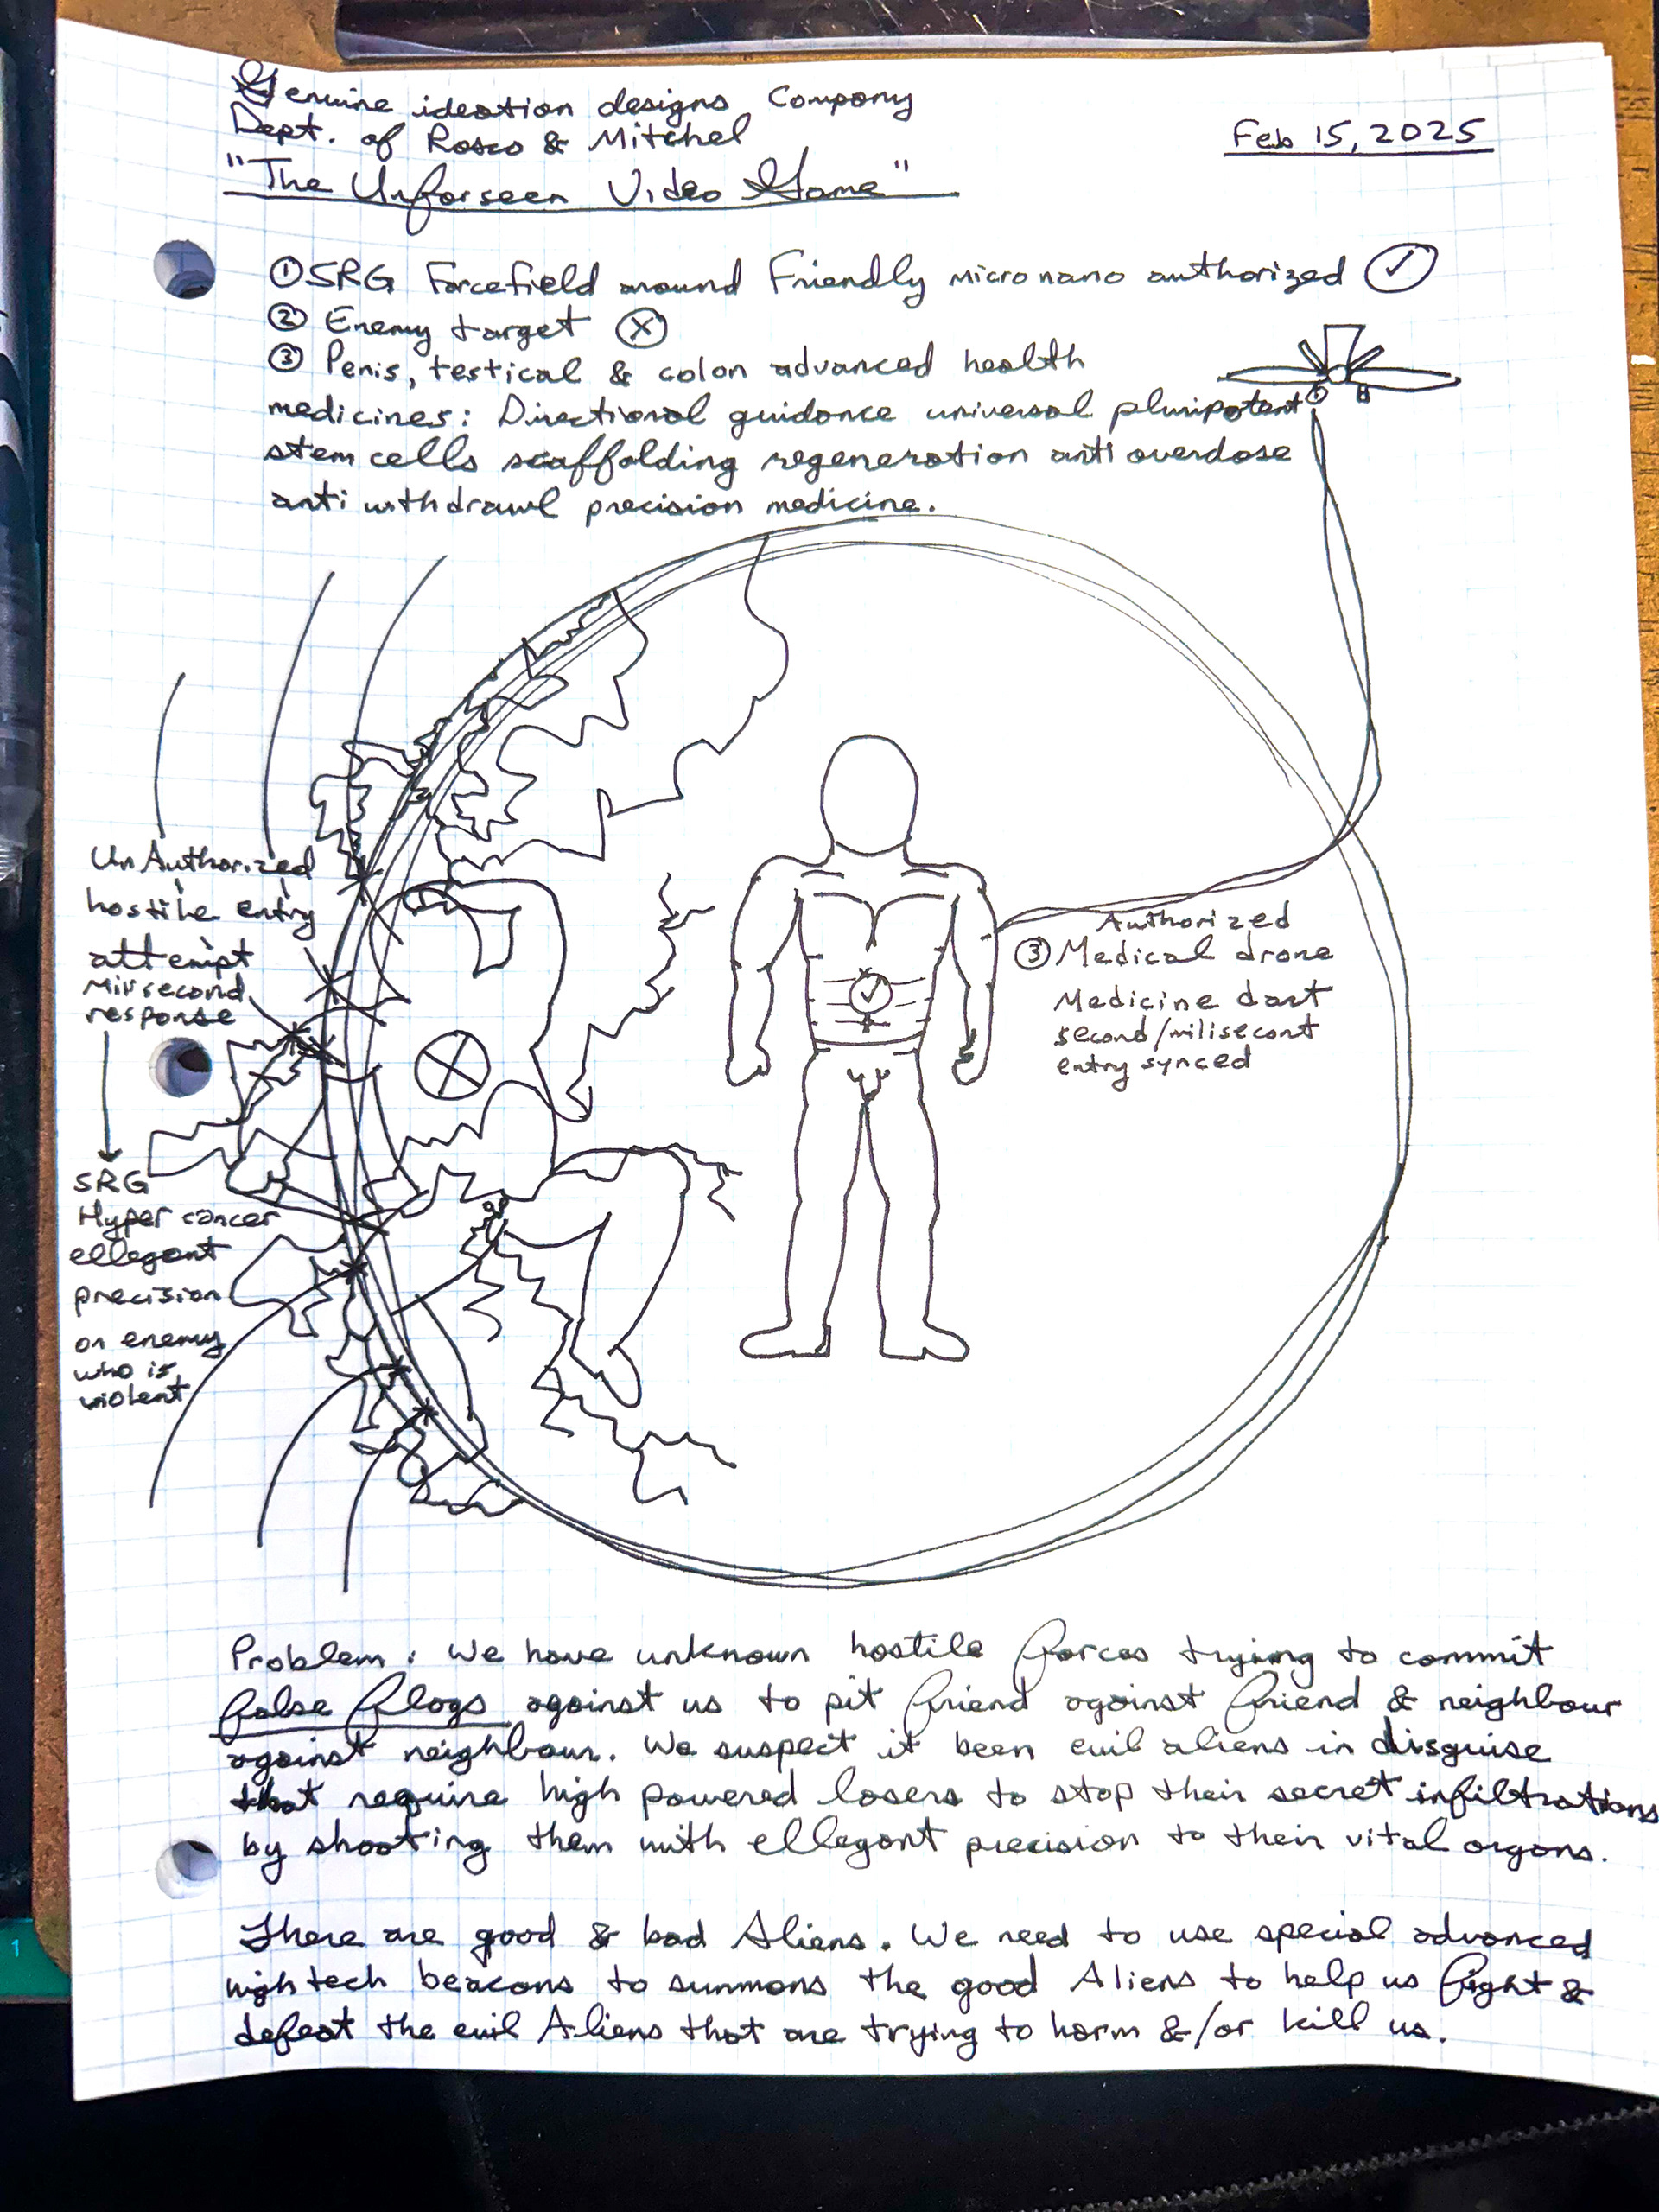 Genuine ideation designs Company
Dept. of Rosco & Mitchel
"The Unforseen Video Game"
Feb 15, 2025
① SRG Forcefield around Friendly micro nano authorized ✓
② Enemy target ⓧ
③ Penis, testical & colon advanced health
medicines: Directional guidance universal pluripotent
stem cells scaffolding regeneration anti overdose
anti withdrawl precision medicine.
UnAuthorized
hostile entry
attempt
Milisecond
response
SRG
Hyper cancer
ellegant
precision
on enemy
who is
violent
Authorized
③ Medical drone
Medicine dart
second/milisecont
entry synced
Problem: We have unknown hostile forces trying to commit
false flags against us to pit friend against friend & neighbour
against neighbour. We suspect it been evil aliens in disguise
that require high powered lasers to stop their secret infiltrations
by shooting them with ellegant precision to their vital organs.
There are good & bad Aliens. We need to use special advanced
high tech beacons to summons the good Aliens to help us fight &
defeat the evil Aliens that are trying to harm &/or kill us.
1